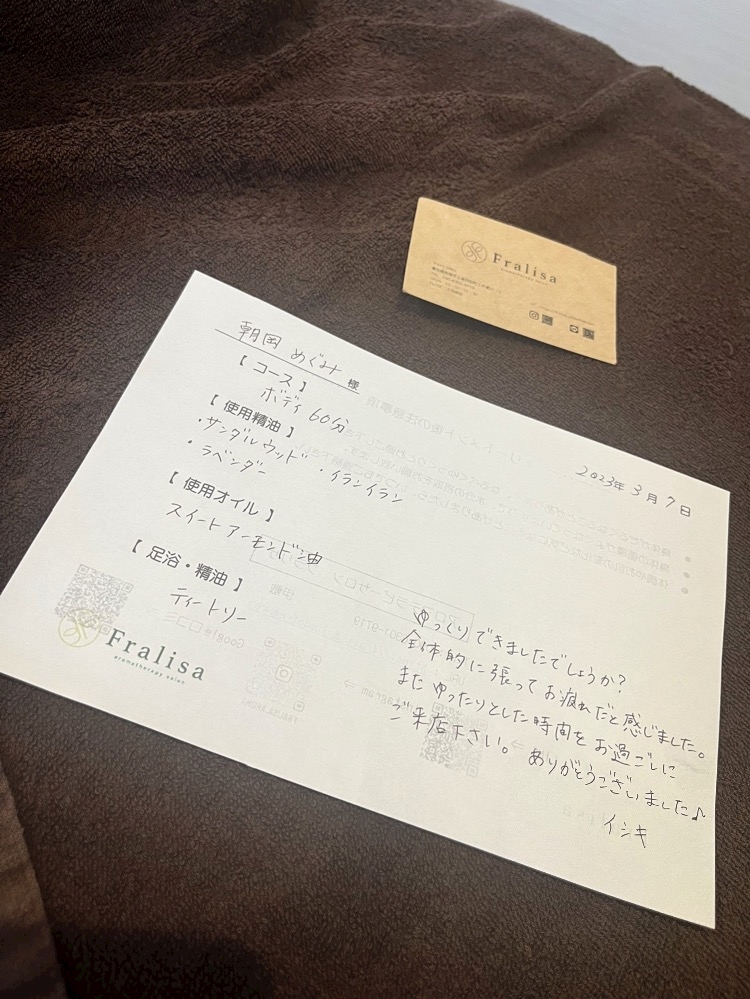 Fralisa
aromatherapy salon
朝岡 めぐみ 様
2023年 3月 7日
【 コース 】
ボディ 60分
【 使用精油 】
・サンダルウッド ・イランイラン
・ラベンダー
【 使用オイル 】
スイートアーモンド油
【 足浴・精油 】
ティートリー
Fralisa
aromatherapy salon
ゆっくりできましたでしょうか?
全体的に張ってお疲れだと感じました。
またゆったりとした時間をお過ごしに
ご来店下さい。ありがとうございました♪
イシキ